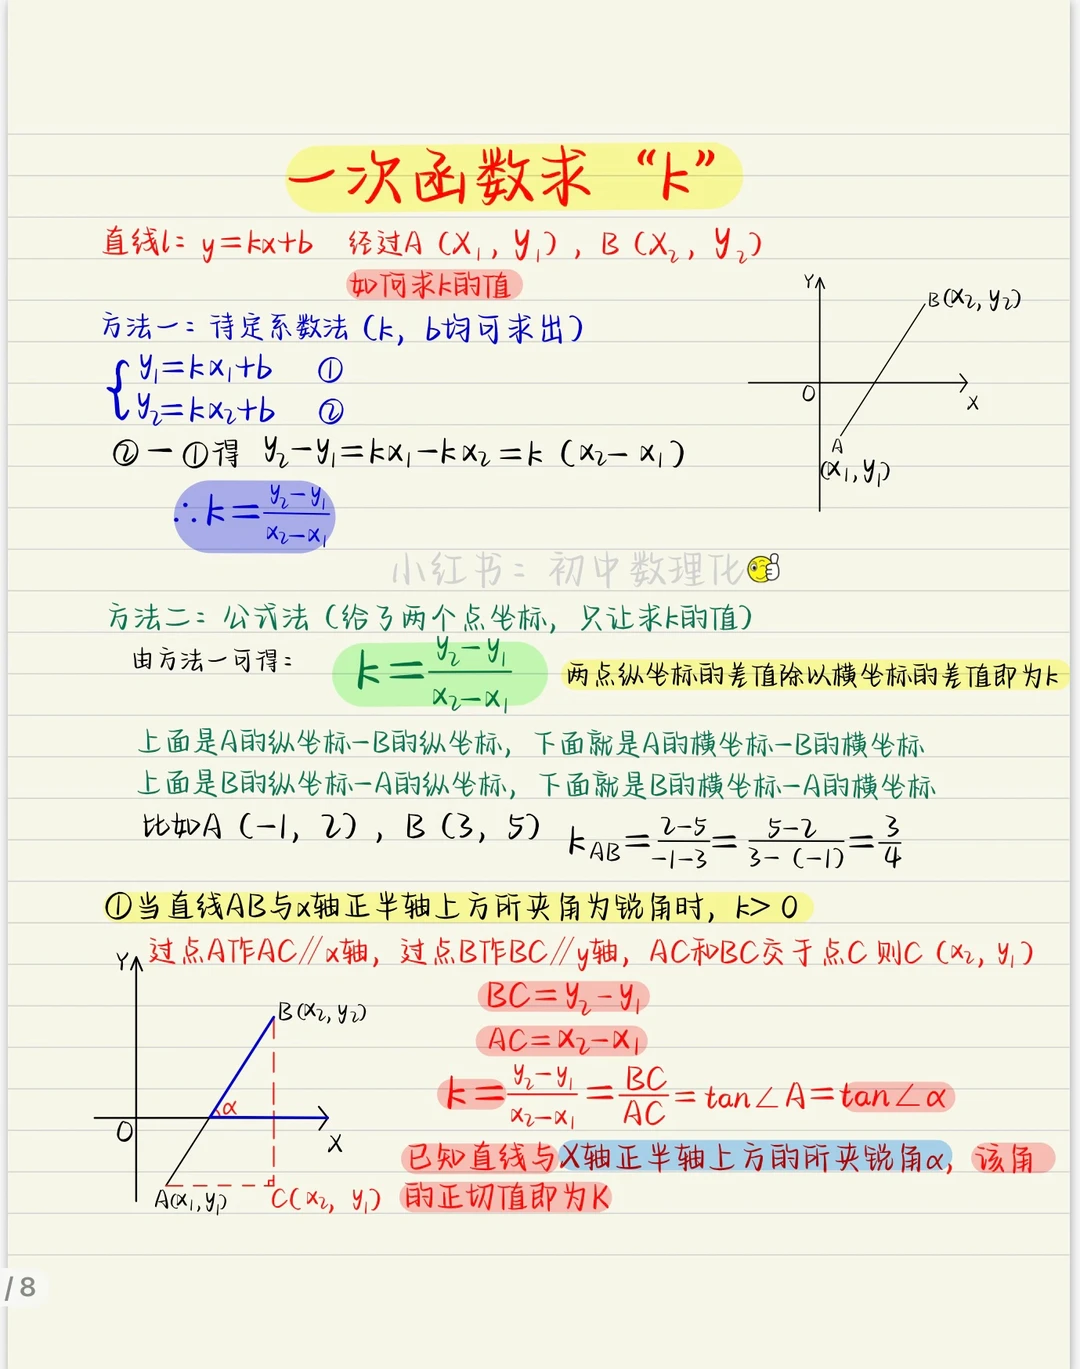 一次函数求“k”
直线l: y=kx+b 经过A (x₁, y₁), B (x₂, y₂)
如何求k的值
方法一: 待定系数法 (k, b均可求出)
y₁=kx₁+b ①
y₂=kx₂+b ②
②-①得 y₂-y₁=kx₁-kx₂=k (x₂-x₁)
∴k=y₂-y₁/x₂-x₁
Y
B(x₂, y₂)
O
X
A
(x₁, y₁)
小红书: 初中数理化
方法二: 公式法 (给了两个点坐标, 只让求k的值)
由方法一可得: k=y₂-y₁/x₂-x₁ 两点纵坐标的差值除以横坐标的差值即为k
上面是A的纵坐标-B的纵坐标, 下面就是A的横坐标-B的横坐标
上面是B的纵坐标-A的纵坐标, 下面就是B的横坐标-A的横坐标
比如A (-1, 2), B (3, 5) k_AB=2-5/-1-3=5-2/3-(-1)=3/4
①当直线AB与x轴正半轴上方所夹角为锐角时, k>0
过点A作AC//x轴, 过点B作BC//y轴, AC和BC交于点C 则C (x₂, y₁)
BC=y₂-y₁
AC=x₂-x₁
k=y₂-y₁/x₂-x₁=BC/AC=tan∠A=tan∠α
已知直线与X轴正半轴上方的所夹锐角α, 该角
的正切值即为K
Y
B(x₂, y₂)
α
O
X
A(x₁, y₁)
C(x₂, y₁)
/8